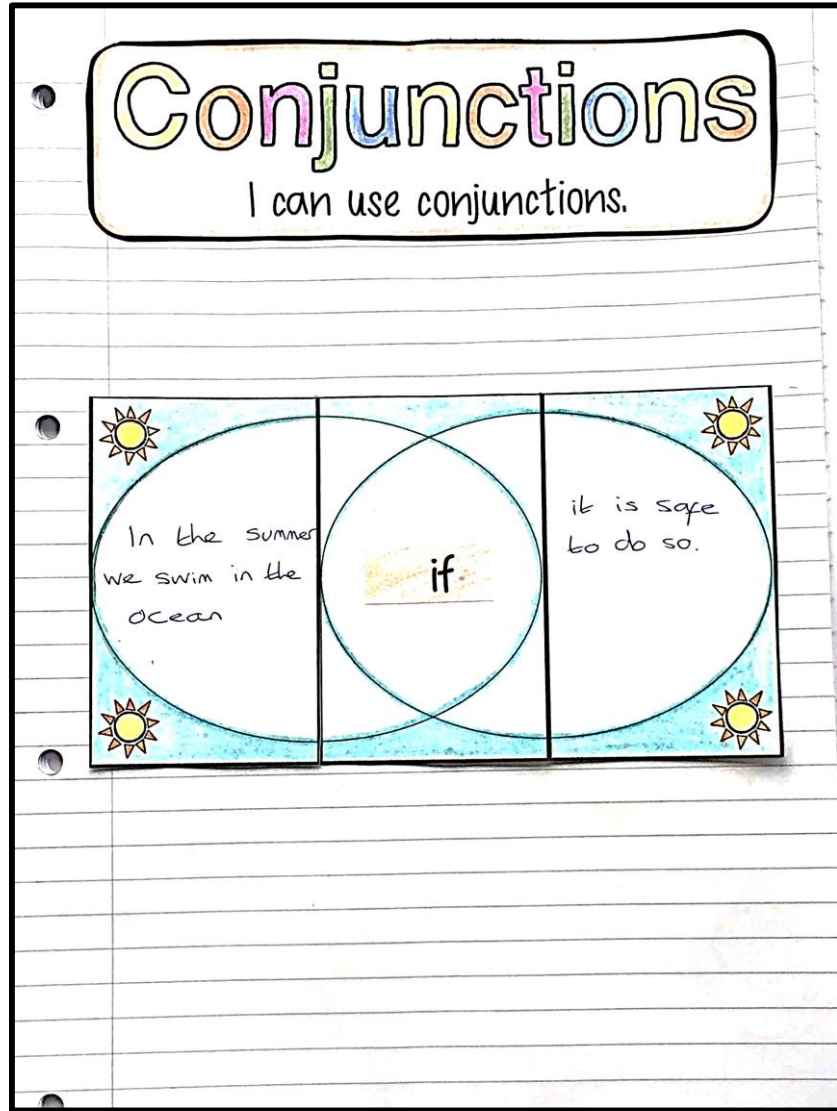 Conjunctions
I can use conjunctions.
In the summer
we swim in the
ocean
if
it is safe
to do so.